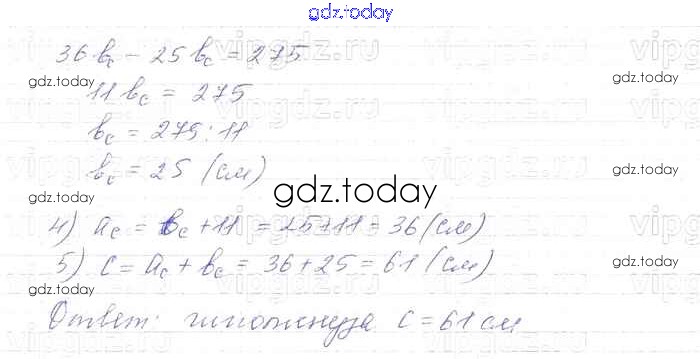 gdz.today
36 b_c - 25 b_c = 275
gdz.today
gdz.today
11 b_c = 275
b_c = 275 : 11
b_c = 25 (см)
gdz.today
gdz.today
gdz.today
4) a_c = b_c + 11 = 25 + 11 = 36 (см)
5) c = a_c + b_c = 36 + 25 = 61 (см)
gdz.today
gdz.today
Ответ: гипотенуза c = 61 см
gdz.today
vipgdz.ru